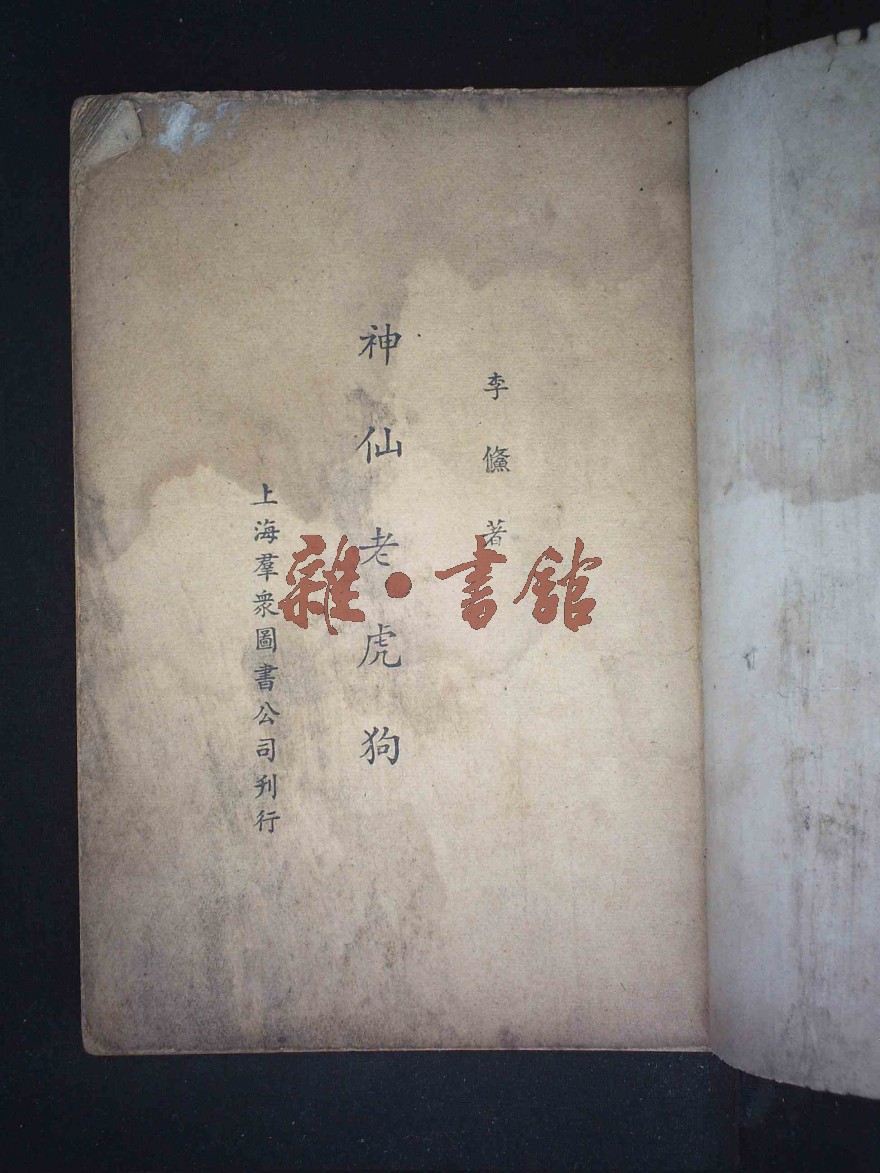 李儵著
神仙老虎狗
上海羣衆圖書公司刋行
雜·書館